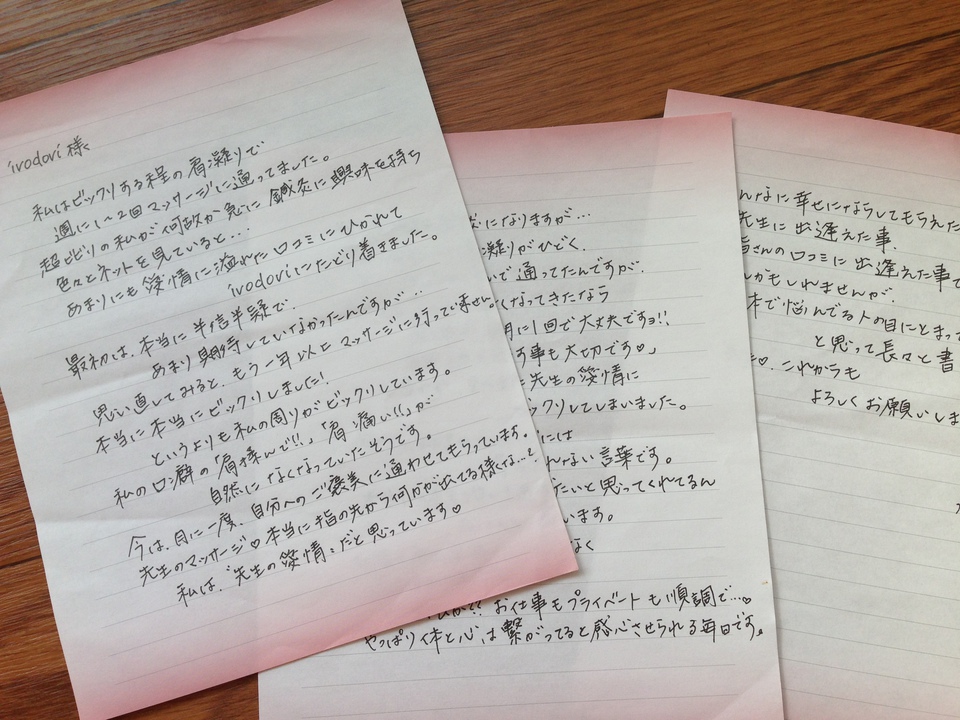 irodori 様
私はビックリする程の肩凝りで
週に1〜2回マッサージに通ってました。
超ビビリの私が何故か急に鍼灸に興味を持ち
色々とネットを見ていると...
あまりにも愛情に溢れた口コミにひかれて
irodoriにたどり着きました。
最初は、本当に半信半疑で、
あまり期待していなかったんですが...
思い返してみると、もう一年以上マッサージに行って来せん。
本当に本当にビックリしました!
というよりも私の周りがビックリしています。
私の口癖の「肩揉んで!!」「肩痛い!!」が
自然になくなっていたそうです。
今は、月に一度、自分へのご褒美に通わせてもらっています。
先生のマッサージ♡本当に指の先から何かが出てる様な...?
私は、"先生の愛情"だと思っています♡
になりますが...
凝りがひどく、
いで通ってたんですが、
くなってきたなら
月に1回で大丈夫ですョ!!
す事も大切です♡」
先生の愛情に
ックリしてしまいました。
には
んない言葉です。
たいと思ってくれてるん
います。
なく
お仕事もプライベートも順調で...♡
やっぱり体と心は繋がってると感心させられる毎日です。
んなに幸せにならしてもらえた
先生に出逢えた事、
皆さんの口コミに出逢えた事で
かもしれませんが、
体で悩んでる人の目にとまっ
と思って長々と書
♡、これからも
よろしくお願いしま